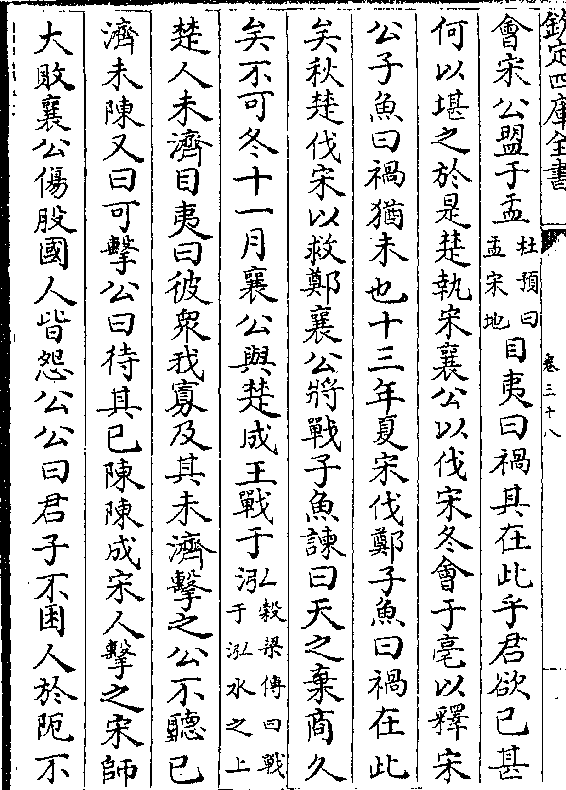 欽定四庫全書
卷三十八
會宋公盟于盂杜預曰盂宋地目夷曰禍其在此乎君欲已甚
何以堪之於是楚執宋襄公以伐宋冬會于亳以釋宋
公子魚曰禍猶未也十三年夏宋伐鄭子魚曰禍在此
矣秋楚伐宋以救鄭襄公將戰子魚諫曰天之棄商久
矣不可冬十一月襄公與楚成王戰于泓穀梁傳曰戰于泓水之上
楚人未濟目夷曰彼衆我寡及其未濟擊之公不聽已
濟未陳又曰可擊公曰待其已陳陳成宋人擊之宋師
大敗襄公傷股國人皆怨公公曰君子不困人於阨不